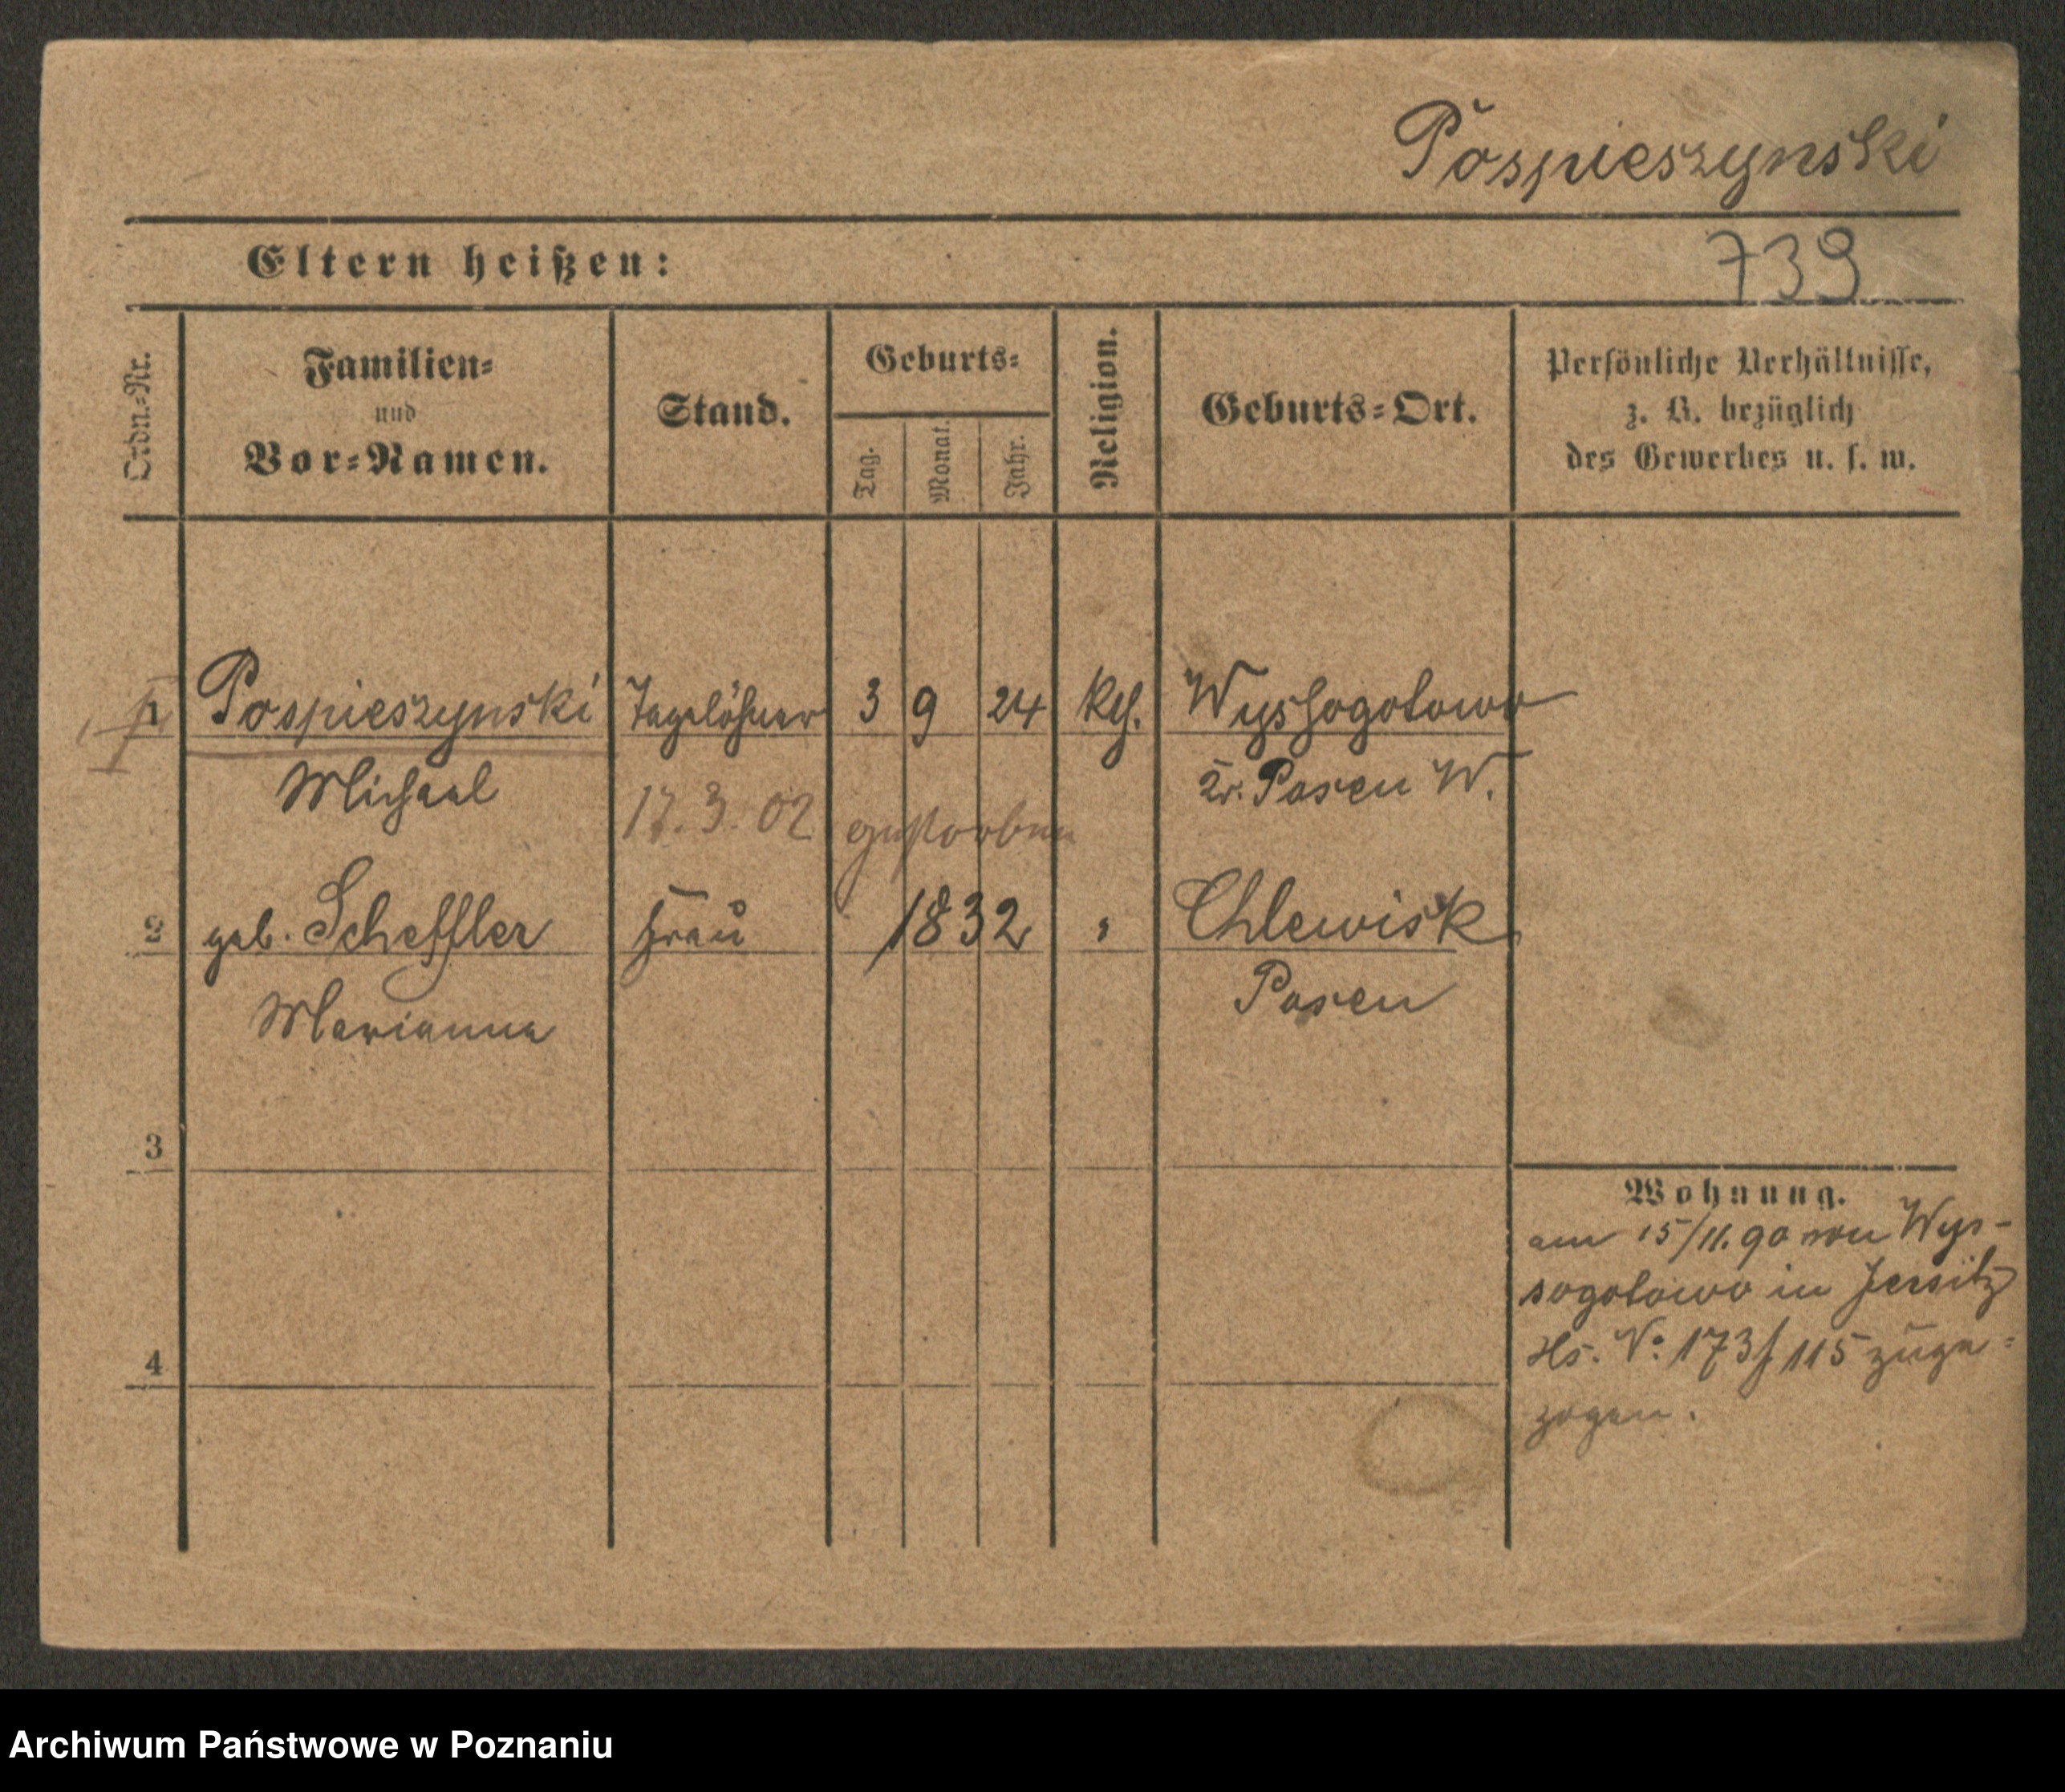 Pospieszynski
Eltern heißen:
739
Ordn.-Nr.
Familien-
und
Vor-Namen.
Stand.
Geburts-
Tag.
Monat.
Jahr.
Religion.
Geburts-Ort.
Persönliche Verhältnisse,
z. B. bezüglich
des Gewerbes u. s. w.
1 Pospieszynski Tagelöhner 3 9 24 kth. Wyssogotowo
Michael Kr. Posen W.
17.3.02 gestorben
2 geb. Scheffler Frau 1832 " Chlewisk
Marianna Posen
3
Wohnung.
am 15/11.90 von Wys-
sogotowo in Jersitz
Hs. No 173f 115 zuge-
zogen.
4
Archiwum Państwowe w Poznaniu